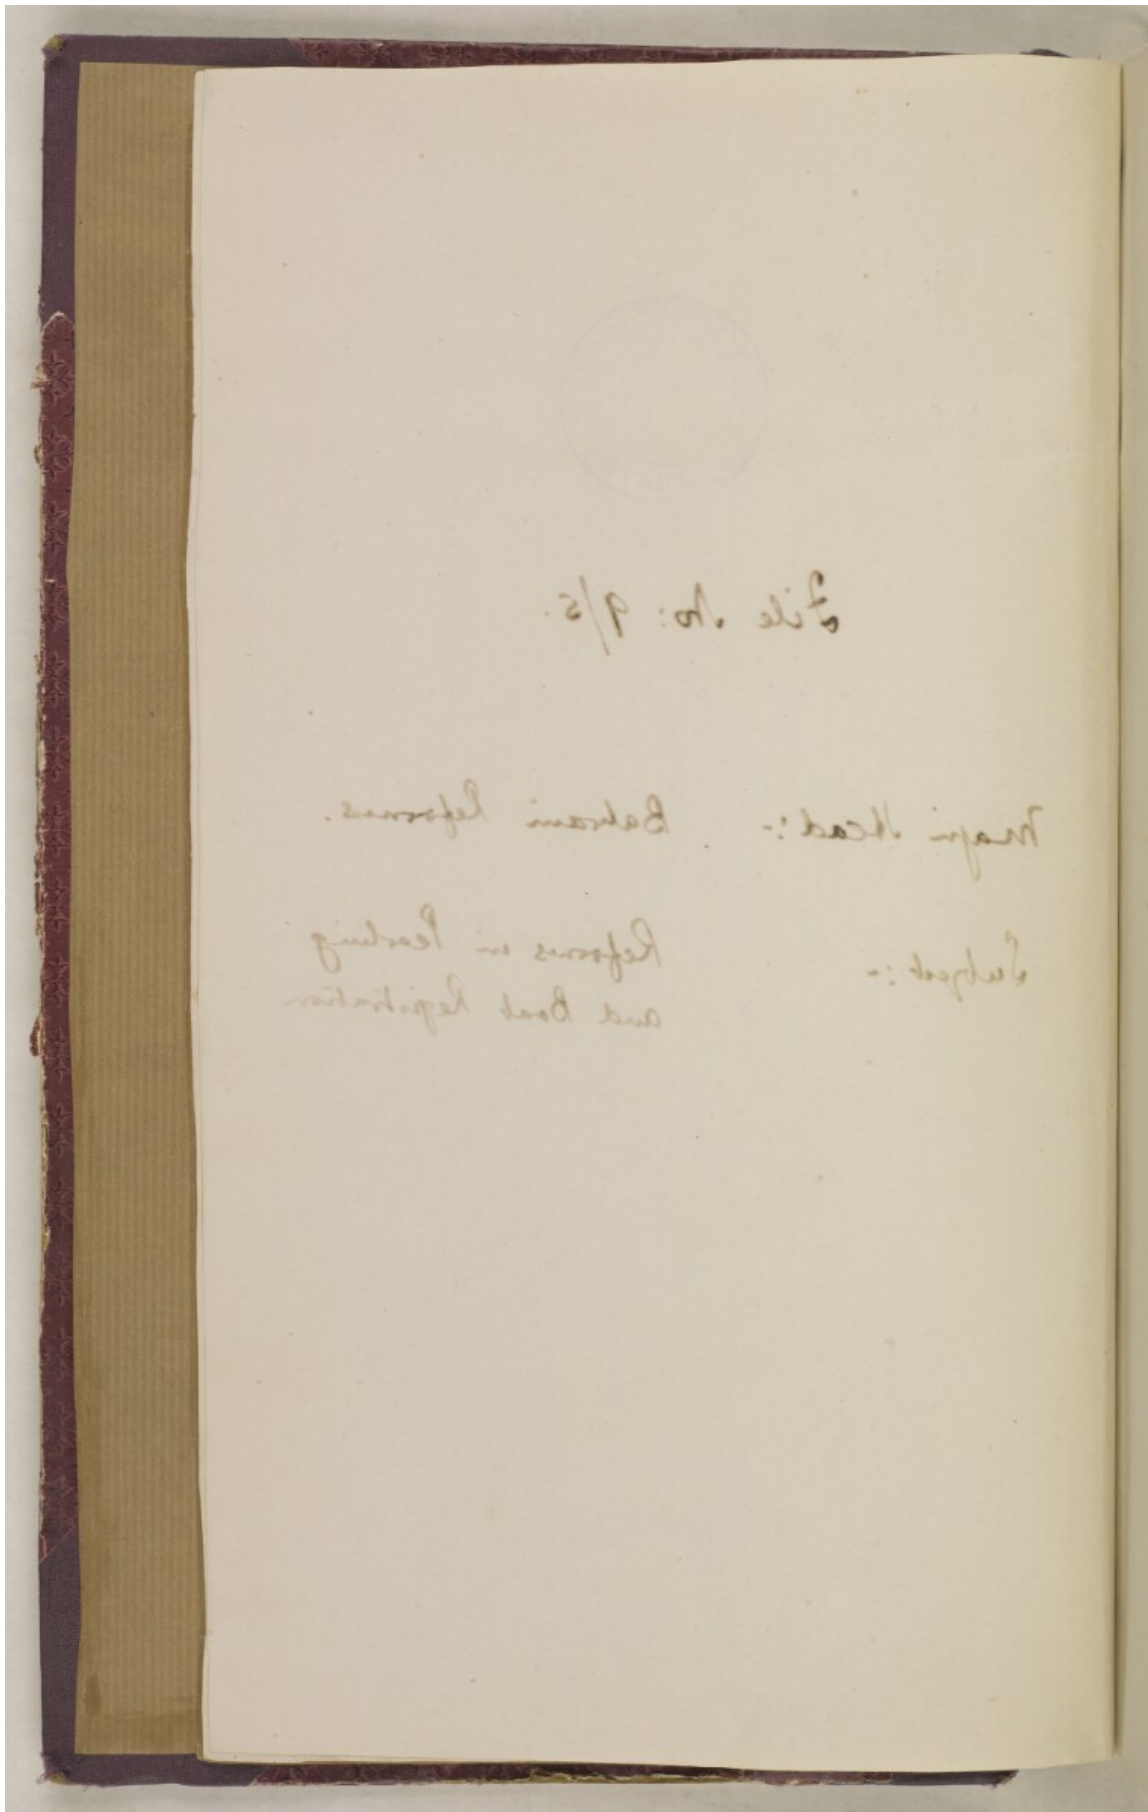 File No: 9/5.
Major Head:- Bahrain Reforms.
Subject:- Reforms in Pearling
and Boat Registration